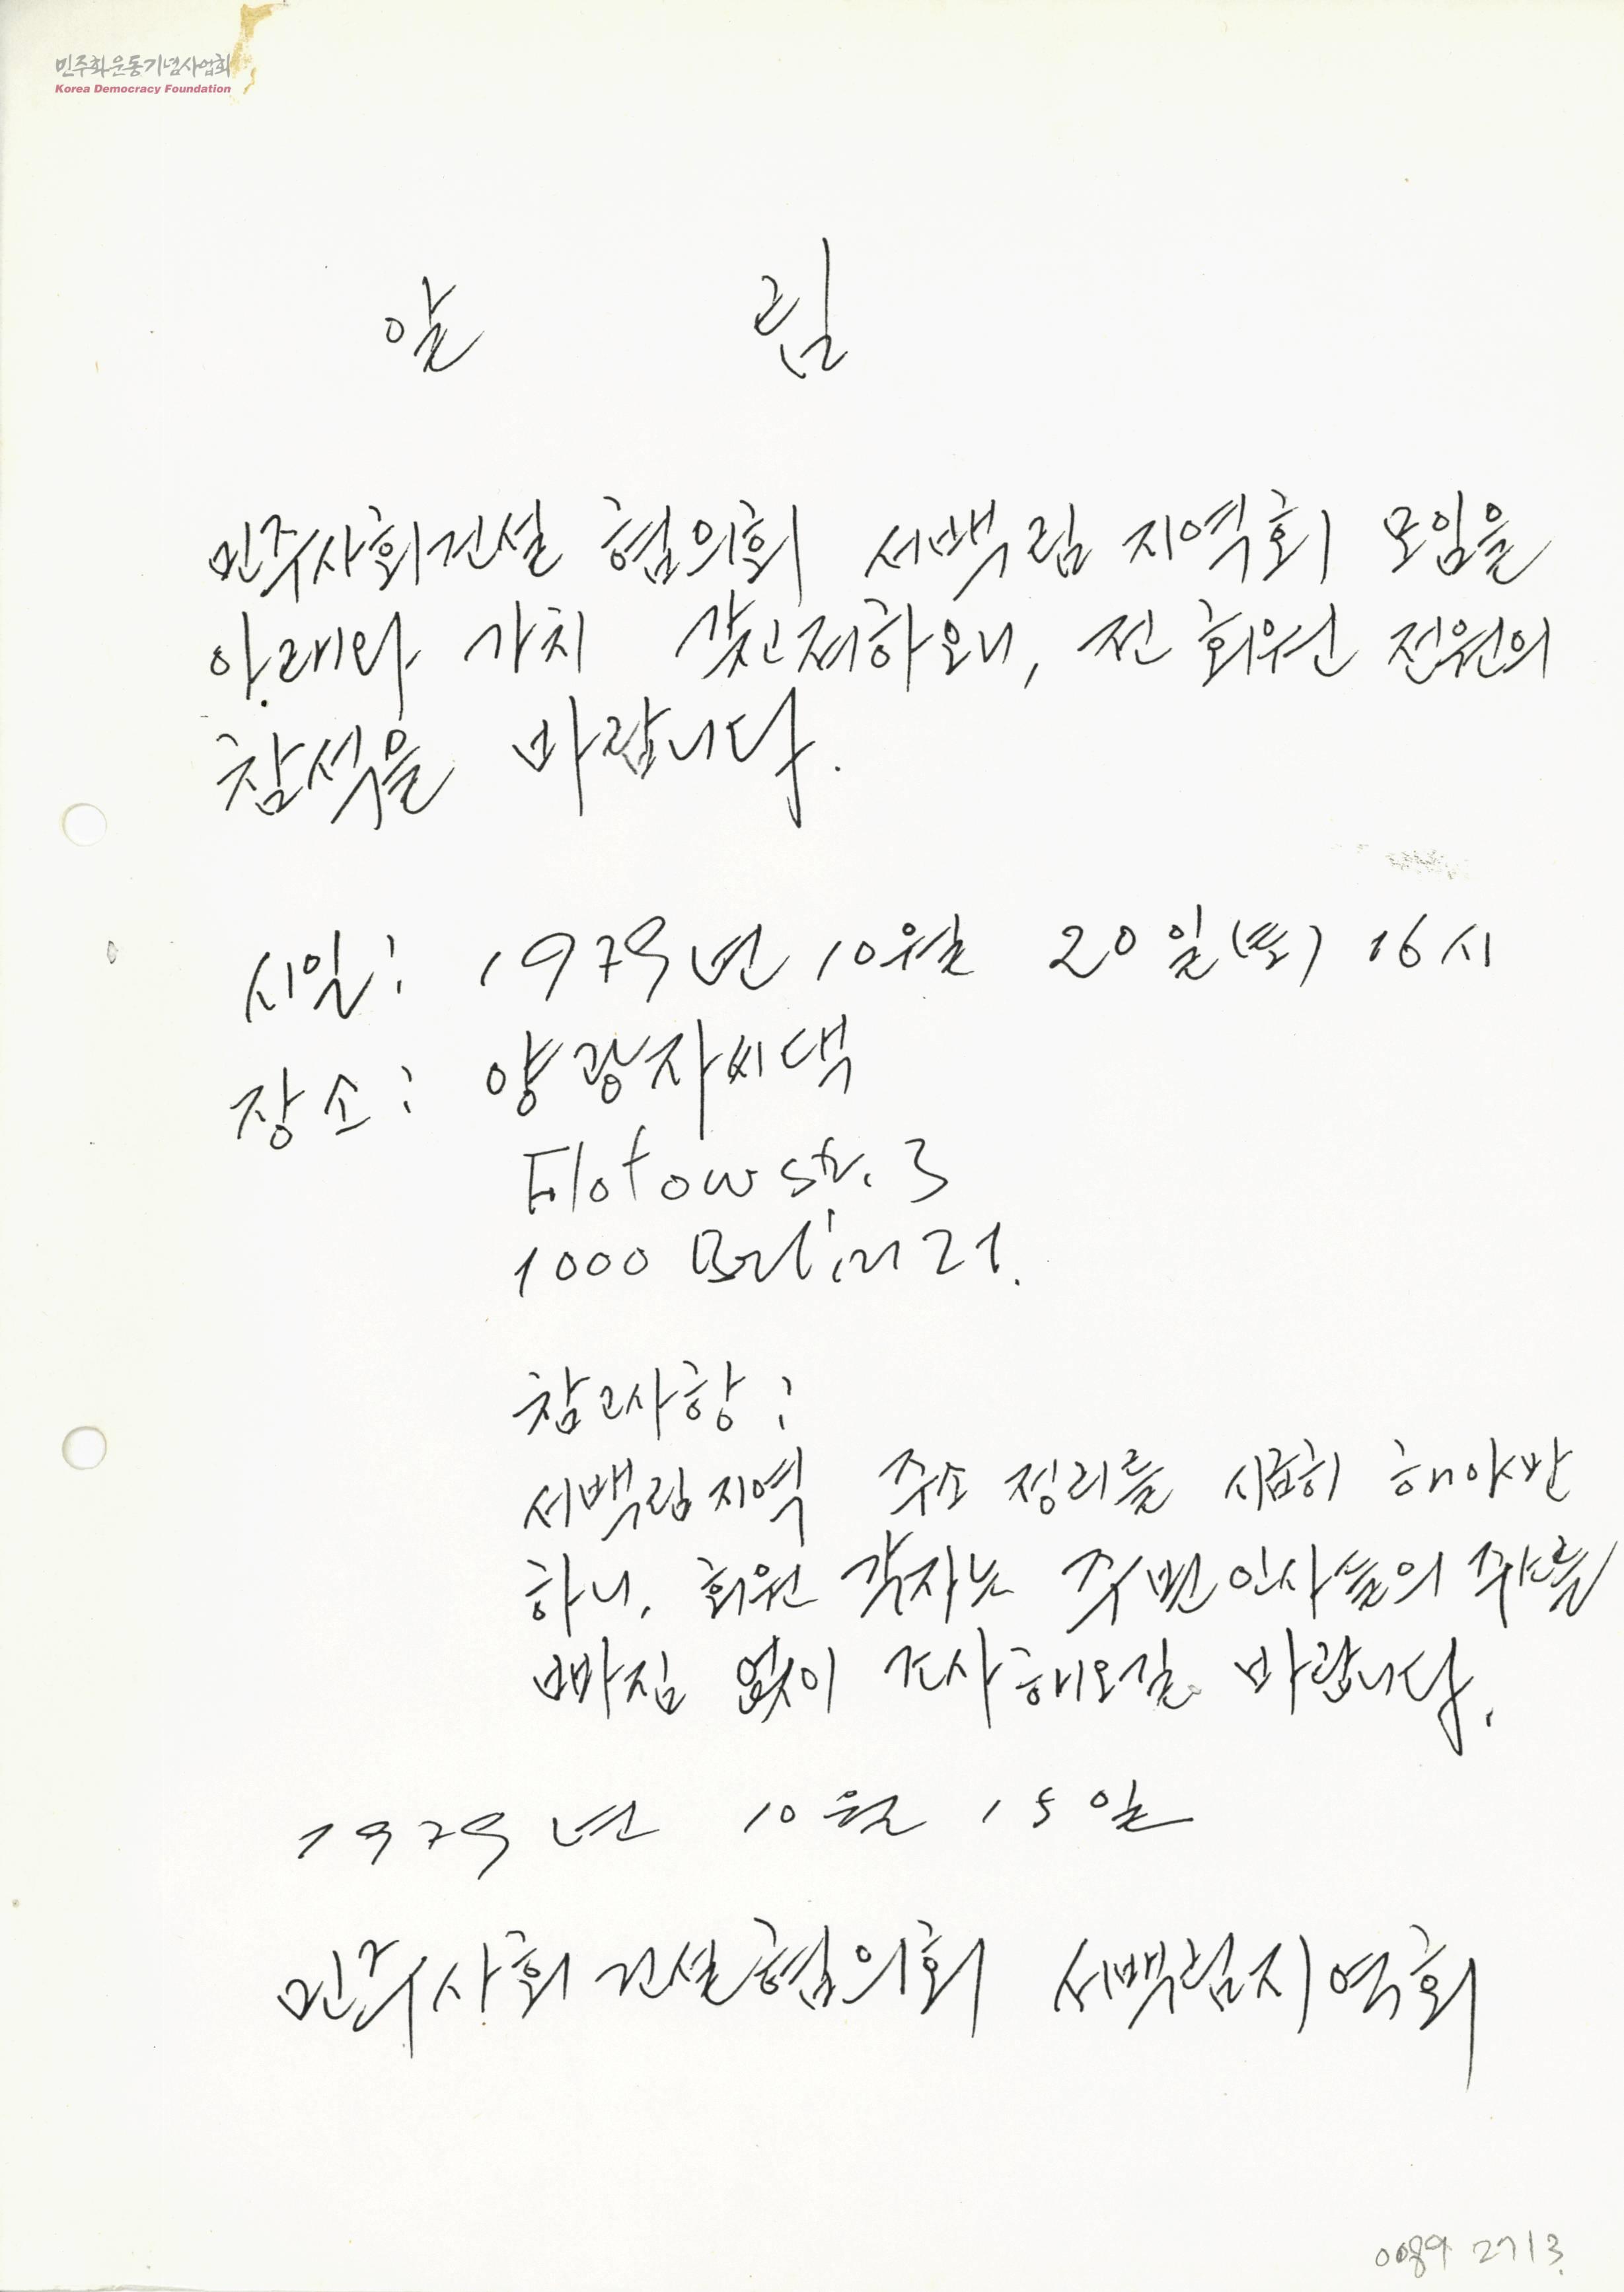 민주화운동기념사업회
Korea Democracy Foundation
알 림
민주사회건설 협의회 서백림 지역회 모임을
아래와 가치 갖고저하오니, 전 회원 전원의
참석을 바랍니다.
시일: 1979년 10월 20일(토) 16시
장소: 양광자씨댁
Flotowstr. 3
1000 Berlin 21.
참고사항:
서백림지역 주소 정리를 시급히 해야만
하니, 회원 각자는 주변인사들의 주소를
빠짐 없이 조사해오길 바랍니다.
1979년 10월 15일
민주사회건설협의회 서백림지역회
0089 2713